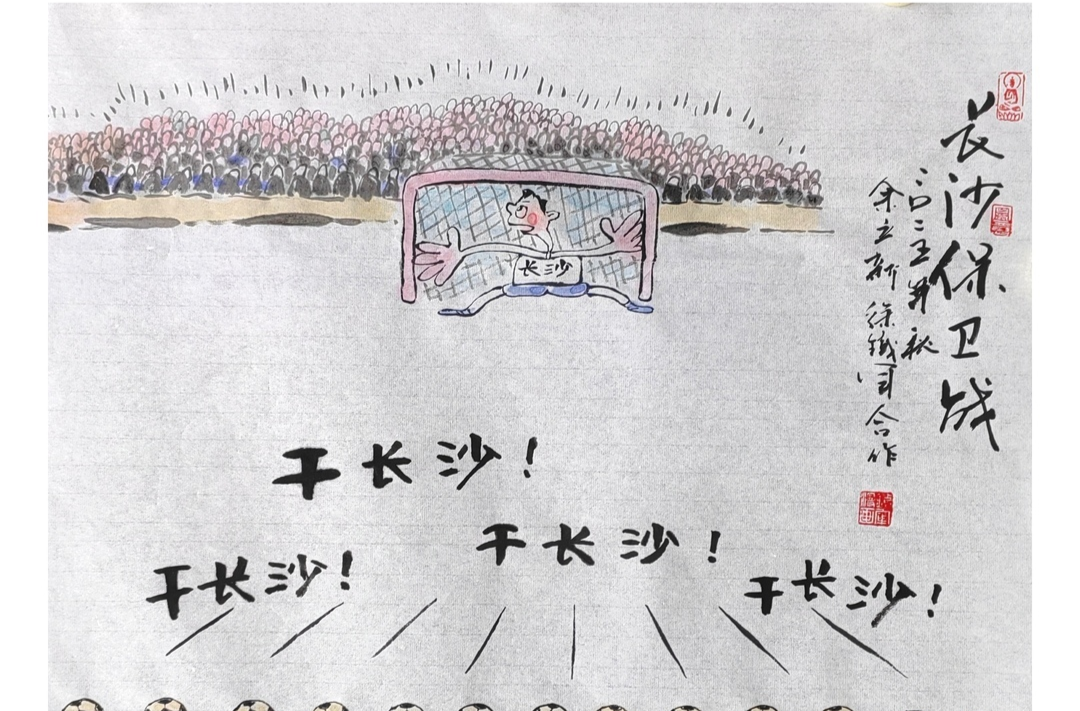 长沙保卫战
二〇二五年秋
余立新 徐铁军 合作
长沙
干长沙！
干长沙！
干长沙！
干长沙！